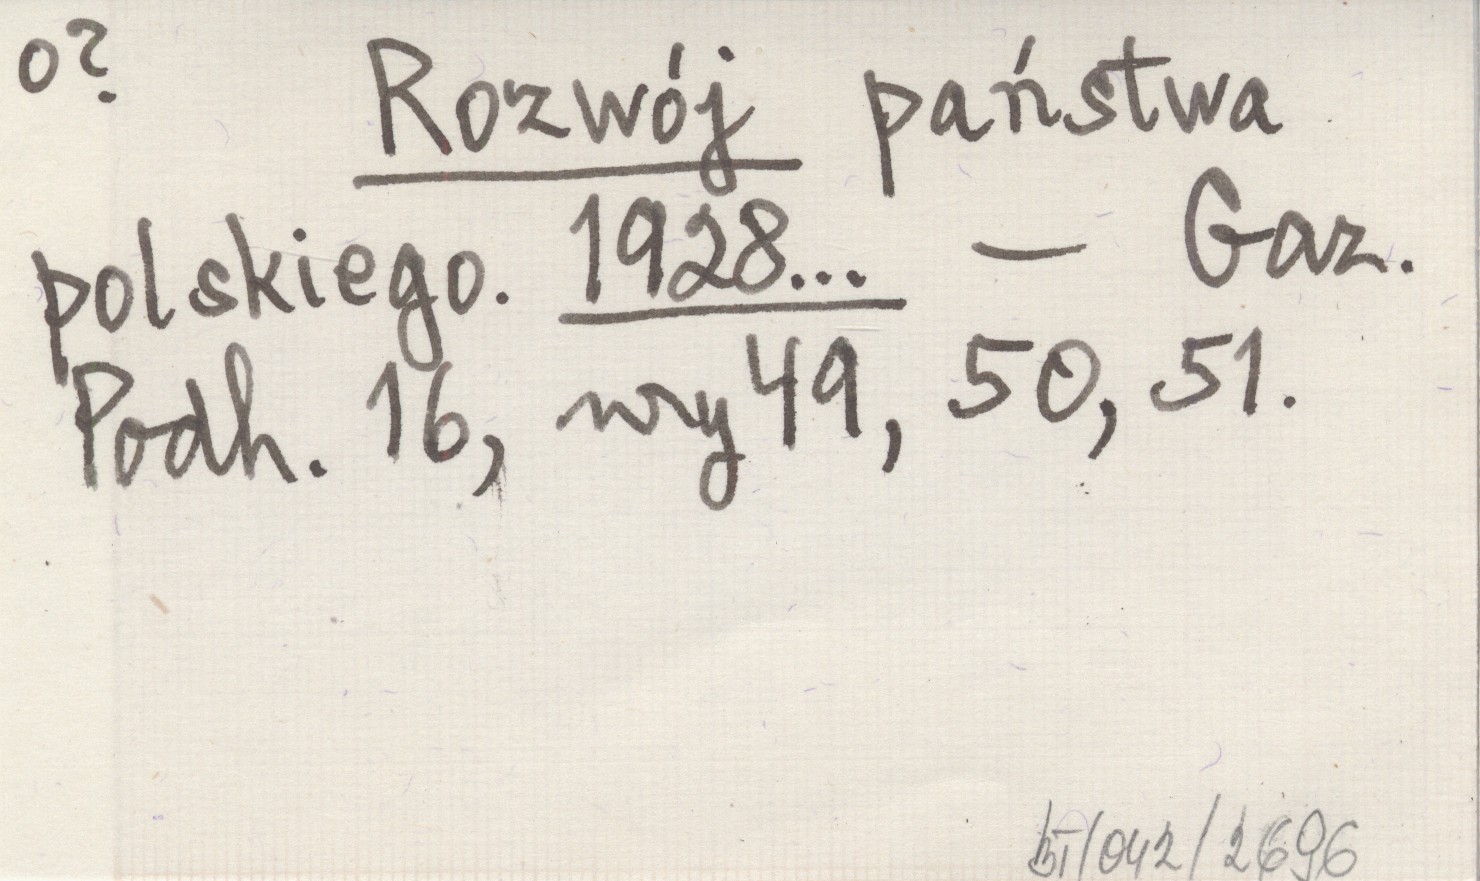 o?
Rozwój państwa
polskiego. 1928... — Gaz.
Podh. 16, nry 49, 50, 51.
/042/2696